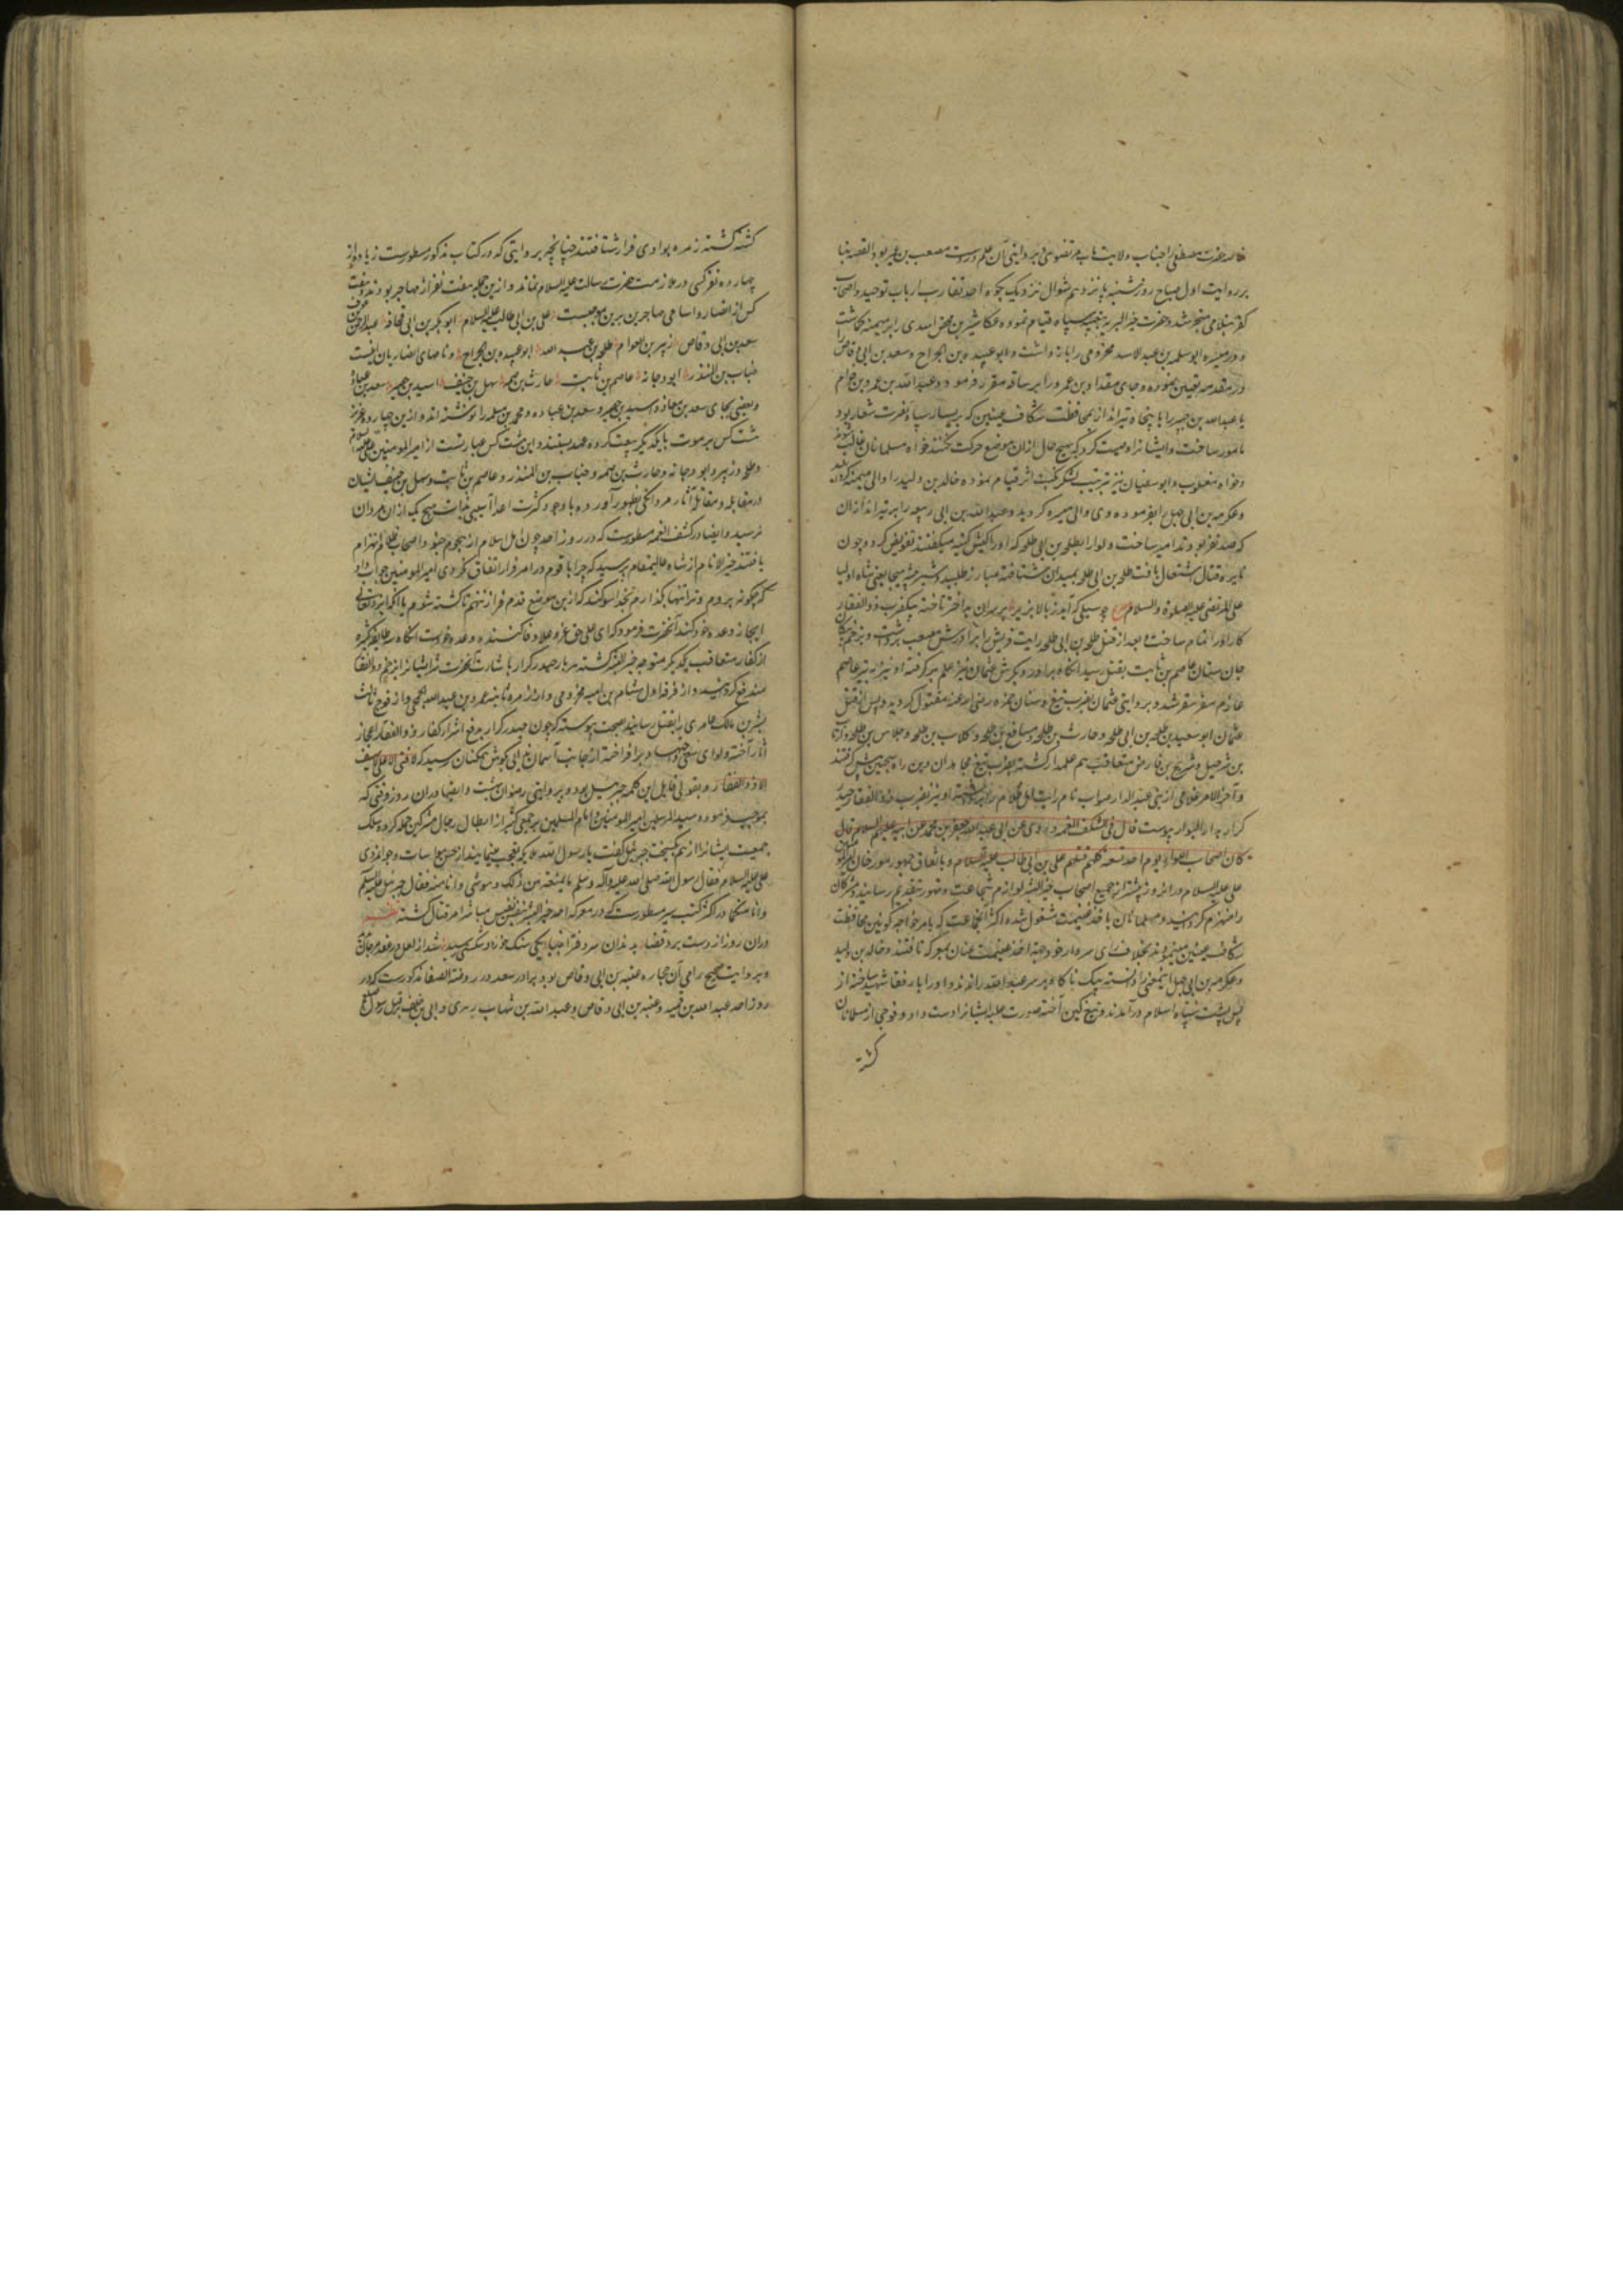 بر روایت اول صباح روز شنبه پانزدهم شوال نزدیک بکوه احد تقارب ارباب توحید و اصحاب
کفر بتلاقی منجر شد و حضرت خیر البریه بتعبیه سپاه قیام نموده عکاشه بن محصن اسدی را بر میمنه گماشت
و در میسره ابو سلمه بن عبد الاسد مخزومی را بازداشت و ابو عبیده بن الجراح و سعد بن ابی وقاص را
در مقدمه تعیین نموده و جای مقداد بن عمرو را بر ساقه مقرر فرمود و عبد الله بن عمرو بن حرام
یا عبد الله بن جبیر را با پنجاه تیرانداز بمحافظت شکاف عینین که بر یسار سپاه نصرت شعار بود
مامور ساخت و ایشانرا وصیت کرد که بهیچ حال ازان موضع حرکت نکنند خواه مسلمانان غالب شوند
و خواه مغلوب و ابو سفیان نیز بترتیب لشکر نکبت اثر قیام نموده خالد بن ولید را والی میمنه گردانید
و عکرمه بن ابی جهل بفرموده وی والی میسره گردید و عبد الله بن ابی ربیعه را بر تیراندازان
که صد نفر بودند امیر ساخت و لوا را بطلحه بن ابی طلحه که او را کبش کتیبه میگفتند تفویض کرد و چون
نایره قتال اشتعال یافت طلحه بن ابی طلحه بمیدان شتافته مبارز طلبید و شیر بیشه هیجا یعنی شاه اولیا
علی المرتضی علیه الصلوة والسلام
کار او را تمام ساخت و بعد از قتل طلحه بن ابی طلحه رایت قریش را برادرش مصعب برداشت و بزخم پیکان
جان ستان عاصم بن ثابت بقتل رسید انگاه برادر دیگرش عثمان نیز علم برگرفته او نیز به تیر عاصم
عازم سفر سقر شد و بروایتی عثمان بضرب تیغ و سنان حمزه رضی الله عنه مقتول گردید و پس از قتل
عثمان ابو سعید بن طلحه بن ابی طلحه و حارث بن طلحه و مسافع بن طلحه و کلاب بن طلحه و جلاس بن طلحه و ارطاة
بن شرحبیل و شریح بن قارض متعاقب هم علمدار گشته بضرب تیغ مجاهدان دین راه سجین پیش گرفتند
و آخر الامر غلامی از بنی عبد الدار صواب نام رایت اهل ظلام را برداشته او نیز بضرب ذو الفقار حیدر
کرار بدار البوار پیوست قال فی کشف الغمه و روی عن ابی عبد الله جعفر بن محمد عن ابیه علیهم السلام قال
کان اصحاب اللواء یوم احد تسعة کلهم قتلهم علی بن ابی طالب علیه السلام و باتفاق جمهور مورخان امیر المومنین
علی علیه السلام در انروز پیشتر از جمیع اصحاب خیر البشر لوازم شجاعت و تهور بتقدیم رسانید و مشرکان
را منهزم گردانید و مسلمانان باخذ غنیمت مشغول شده اکثر آنجماعت که بامر خواجه کونین محافظت
شکاف عینین مینمودند بخلاف رای سردار خود جهة اخذ غنیمت عنان بمعرکه تافتند و خالد بن ولید
و عکرمه بن ابی جهل اینمعنی را دانسته بیک ناگاه بر سر عبد الله راندند و او را با رفقا شهید ساخته از
پس پشت سپاه اسلام درآمدند و تیغ کین آخته صورت غلبه ایشانرا دست داد و فوجی از مسلمانان
کشته
کشته گشته زمره بوادی فرار شتافتند چنانچه بروایتی که در کتاب مذکور مسطورست زیاده از
چهارده نفر کسی در ملازمت حضرت رسالت علیه السلام نماند و ازین جمله هفت نفر از مهاجر بودند و هفت
کس از انصار و اسامی مهاجرین برین موجبست علی بن ابی طالب علیه السلام ابو بکر بن ابی قحافه عبد الرحمن بن عوف
سعد بن ابی وقاص زبیر بن العوام طلحه بن عبید الله ابو عبیده بن الجراح و نامهای انصاریان اینست
خباب بن المنذر ابو دجانه عاصم بن ثابت حارث بن صمه سهل بن حنیف اسید بن حضیر سعد بن عباده
و بعضی بجای سعد بن معاذ و اسید بن حضیر و سعد بن عباده و محمد بن مسلمه را نوشته‌اند و ازین چهارده عزیز
هشت کس بر موت با یکدیگر بیعت کرده عهد بستند و این هشت کس عبارتست از امیر المومنین علی علیه السلام
و طلحه و زبیر و ابو دجانه و حارث بن صمه و خباب بن المنذر و عاصم بن ثابت و سهل بن حنیف ایشان
در مقابله و مقاتله آثار مردانگی بظهور آورده با وجود کثرت اعدا آسیبی بذات هیچ یک ازان مردان
نرسید و ایضا در کشف الغمه مسطورست که در روز احد چون اهل اسلام از هجوم جنود اصحاب ظلام انهزام
یافتند خیر الانام از شاه عالیمقام پرسید که چرا با قوم در امر فرار اتفاق نکردی امیر المومنین جواب داد
که چگونه بروم و ترا تنها بگذارم بخدا سوگند که ازین موضع قدم فراتر ننهم تا کشته شوم یا آنکه ایزد تعالی
انجاز وعده خود کند آنحضرت فرمود که ای علی حق عز و علا وفا کننده وعده خودست انگاه سه طایفه کثیره
از کفار متعاقب یکدیگر متوجه خیر البشر گشته هر بار حیدر کرار باشارت آنحضرت شر ایشانرا بزخم ذو الفقار
مندفع گردانید و از فرقه اول هشام بن امیه مخزومی و از زمره ثانیه عمرو بن عبد الله الجمحی و از فوج ثالث
بشر بن مالک عامری را بقتل رسانید بصحت پیوسته که چون حیدر کرار بدفع اشرار کفار ذو الفقار اعجاز
آثار آخته و لوای سعی و جهاد برافراخته از جانب آسمان ندائی بگوش همکنان رسید که لا فتی الا علی لا سیف
الا ذو الفقار و بقولی قایل این کلمه جبرئیل بود و بروایتی رضوان بهشت و ایضا دران روز وقتی که
بموجب فرموده سید المرسلین امیر المومنین و امام المسلمین بر جمعی کثیر از ابطال رجال مشرکین حمله کرده سلک
جمعیت ایشانرا از هم گسیخت جبرئیل گفت یا رسول الله ملایکه تعجب مینمایند از حسن مواسات و جوانمردی
علی علیه السلام فقال رسول الله صلی الله علیه وآله وسلم ما یمنعه من ذلک وهو منی وانا منه فقال جبرئیل علیه السلام
وانا منکما در اکثر کتب سیر مسطورست که در معرکه احد خیر البشر بنفس نفیس مباشر امر قتال گشته نظم
دران روز از دست برد قضا بدندان سرور فتاد سنگ شد از لعل در حقه مرجان
و بروایت صحیح رامی آن حجاره عتبه بن ابی وقاص بود برادر سعد در روضة الصفا مذکورست که در
روز احد عبد الله بن قمیه و عتبه بن ابی وقاص و عبد الله بن شهاب زهری و ابی بن خلف بقتل رسول